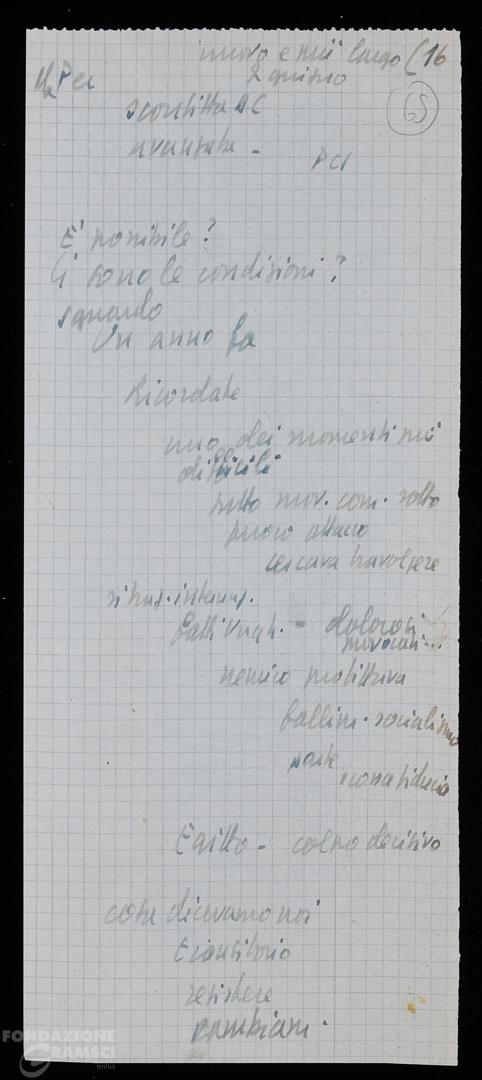 nuovo e più largo (16
X Per 2 giugno
65
sconfitta DC
avanzata - PCI
E' possibile?
Ci sono le condizioni?
sguardo
Un anno fa
Ricordate
uno dei momenti più
difficili
tutto mov. com. sotto
fuoco attacco
cercava travolgere
situaz. internaz.
fatti Ungh. - dolorosi
nemico profittava
fallim. socialismo
parte scossa fiducia
Egitto - colpo decisivo
cosa dicevamo noi
E' transitorio
resistere
cambiam.
FONDAZIONE
GRAMSCI
onlus